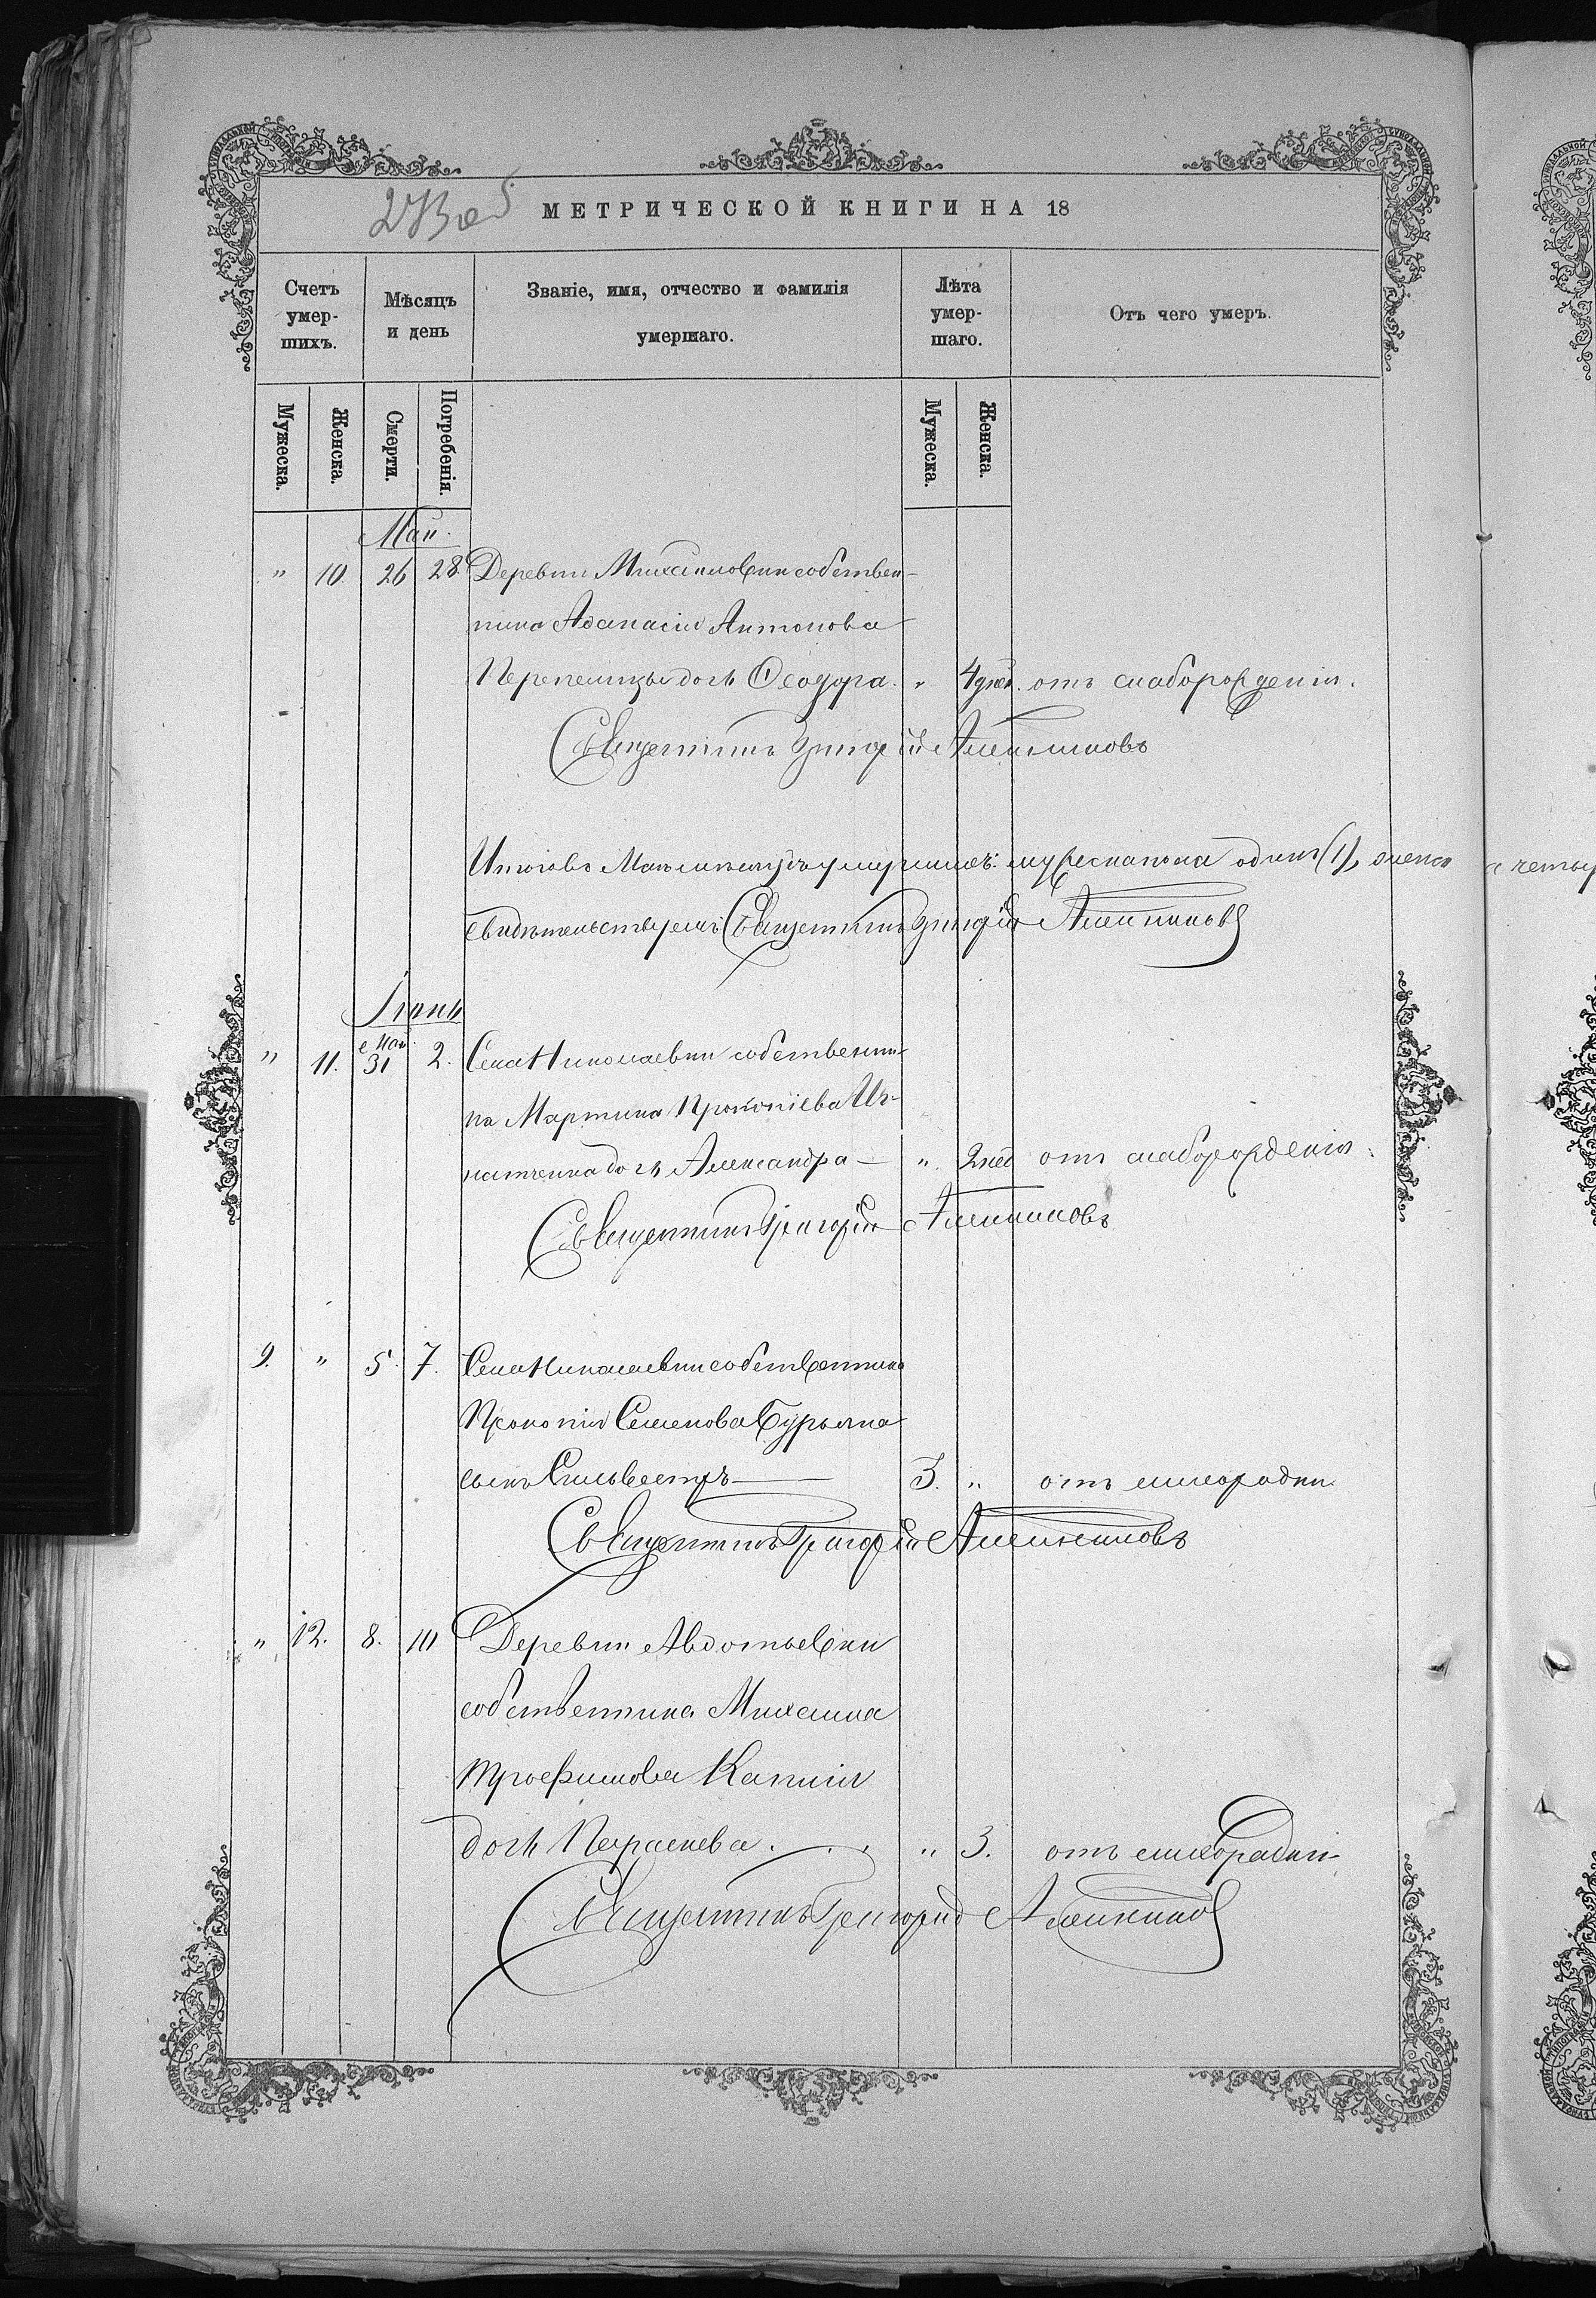 МЕТРИЧЕСКОЙ КНИГИ НА 18
Счетъ умер-шихъ.
Мѣсяцъ и день
Званіе, имя, отчество и фамилія умершаго.
Лѣта умер-шаго.
Отъ чего умеръ.
Мужеска.
Женска.
Смерти.
Погребенія.
Мужеска.
Женска.
Маи.
" 10. 26 28. Деревни Михайловки собствен-
ника Аѳанасія Антонова
Перепелицы дочь Ѳеодора. " 4 дней. отъ слаборожденія.
Священникъ Григорій Алейниковъ
Итого въ Маѣ мѣсяцѣ умершихъ: мужеска пола одинъ (1), женска четыр
свидѣтельствуемъ: Священникъ Григорій Алейниковъ
Іюнь
" 11. Мая 31 2. Села Николаевки собственни-
ка Мартина Прокопіева Иг-
натченка дочь Александра — " 2 нед отъ слаборожденія.
Священникъ Григорій Алейниковъ
9. " 5. 7. Села Николаевки собственника
Прокопія Семенова Бурьяна
сынъ Сильвестръ — 3. " отъ лихорадки
Священникъ Григорій Алейниковъ
" 12. 8. 10 Деревни Авдотьевки
собственника Михаила
Трофимова
дочь Параскева. " 3. отъ лихорадки
Священникъ Григорій Алейниковъ